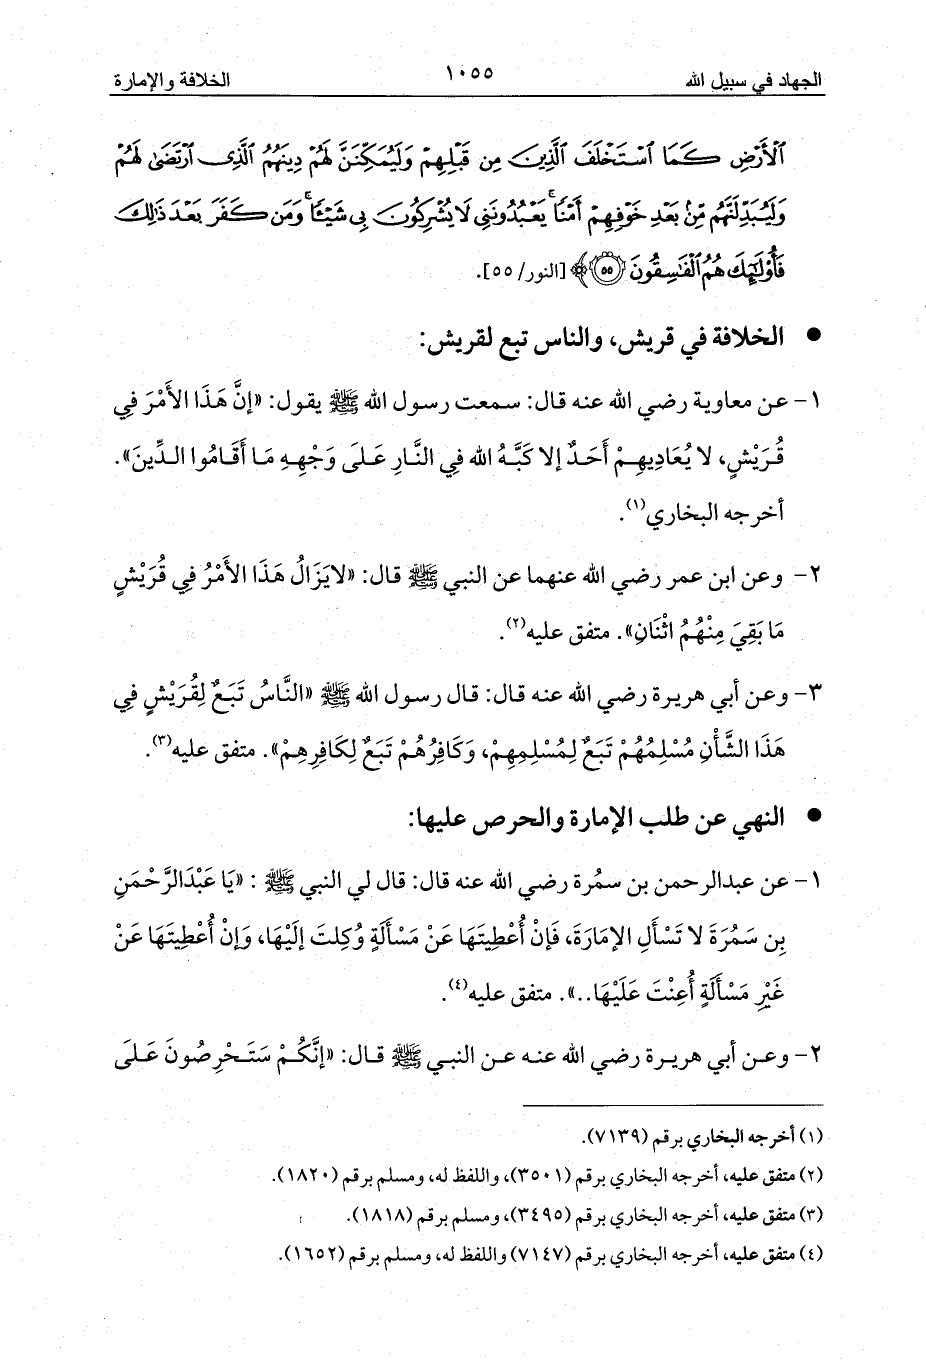 الجهاد في سبيل الله ١٠٥٥ الخلافة والإمارة
ٱلْأَرْضِ كَمَا ٱسْتَخْلَفَ ٱلَّذِينَ مِن قَبْلِهِمْ وَلَيُمَكِّنَنَّ لَهُمْ دِينَهُمُ ٱلَّذِى ٱرْتَضَىٰ لَهُمْ
وَلَيُبَدِّلَنَّهُم مِّنۢ بَعْدِ خَوْفِهِمْ أَمْنًا ۚ يَعْبُدُونَنِى لَا يُشْرِكُونَ بِى شَيْـًٔا ۚ وَمَن كَفَرَ بَعْدَ ذَٰلِكَ
فَأُو۟لَـٰٓئِكَ هُمُ ٱلْفَـٰسِقُونَ ﴿٥٥﴾ [النور/ ٥٥].
● الخلافة في قريش، والناس تبع لقريش:
١- عن معاوية رضي الله عنه قال: سمعت رسول الله ﷺ يقول: «إنَّ هَذَا الأَمْرَ فِي
قُرَيْشٍ، لا يُعَادِيهِمْ أَحَدٌ إلا كَبَّهُ الله فِي النَّارِ عَلَى وَجْهِهِ مَا أَقَامُوا الدِّينَ».
أخرجه البخاري(١).
٢- وعن ابن عمر رضي الله عنهما عن النبي ﷺ قال: «لايَزَالُ هَذَا الأَمْرُ فِي قُرَيْشٍ
مَا بَقِيَ مِنْهُمُ اثْنَانِ». متفق عليه(٢).
٣- وعن أبي هريرة رضي الله عنه قال: قال رسول الله ﷺ «النَّاسُ تَبَعٌ لِقُرَيْشٍ فِي
هَذَا الشَّأْنِ مُسْلِمُهُمْ تَبَعٌ لِمُسْلِمِهِمْ، وَكَافِرُهُمْ تَبَعٌ لِكَافِرِهِمْ». متفق عليه(٣).
● النهي عن طلب الإمارة والحرص عليها:
١- عن عبدالرحمن بن سمُرة رضي الله عنه قال: قال لي النبي ﷺ : «يَا عَبْدَالرَّحْمَنِ
بِن سَمُرَةَ لا تَسْأَلِ الإمَارَةَ، فَإنْ أُعْطِيتَهَا عَنْ مَسْأَلَةٍ وُكِلتَ إلَيْهَا، وَإنْ أُعْطِيتَهَا عَنْ
غَيْرِ مَسْأَلَةٍ أُعِنْتَ عَلَيْهَا..». متفق عليه(٤).
٢- وعن أبي هريرة رضي الله عنه عن النبي ﷺ قال: «إنَّكُمْ سَتَحْرِصُونَ عَلَى
(١) أخرجه البخاري برقم (٧١٣٩).
(٢) متفق عليه، أخرجه البخاري برقم (٣٥٠١)، واللفظ له، ومسلم برقم (١٨٢٠).
(٣) متفق عليه، أخرجه البخاري برقم (٣٤٩٥)، ومسلم برقم (١٨١٨).
(٤) متفق عليه، أخرجه البخاري برقم (٧١٤٧) واللفظ له، ومسلم برقم (١٦٥٢).